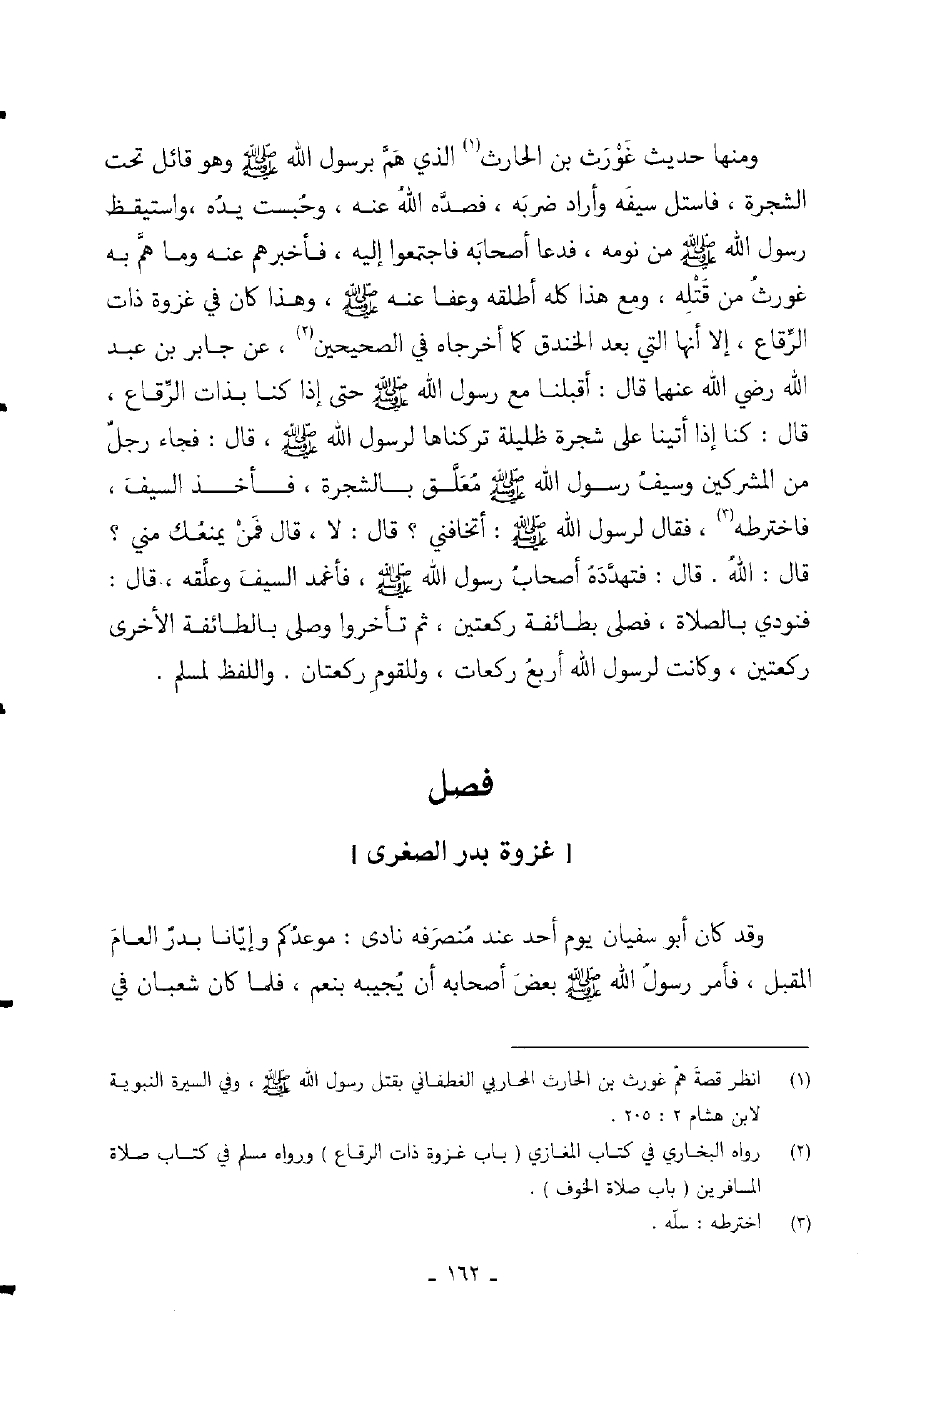 ومنها حديث غَوْرَث بن الحارث(١) الذي هَمَّ برسول الله ﷺ وهو قائل تحت
الشجرة ، فاستل سيفَه وأراد ضربَه ، فصدَّه اللهُ عنه ، وحُبست يدُه ،واستيقظ
رسول الله ﷺ من نومه ، فدعا أصحابَه فاجتمعوا إليه ، فأخبرهم عنه وما همَّ به
غورثُ من قَتْلِه ، ومع هذا كله أطلقه وعفا عنه ﷺ ، وهذا كان في غزوة ذات
الرِّقاع ، إلا أنها التي بعد الخندق كما أخرجاه في الصحيحين(٢) ، عن جابر بن عبد
الله رضي الله عنهما قال : أقبلنا مع رسول الله ﷺ حتى إذا كنا بذات الرِّقاع ،
قال : كنا إذا أتينا على شجرة ظليلة تركناها لرسول الله ﷺ ، قال : فجاء رجلٌ
من المشركين وسيفُ رسول الله ﷺ مُعَلَّق بالشجرة ، فأخذ السيفَ ،
فاخترطه(٣) ، فقال لرسول الله ﷺ : أتخافني ؟ قال : لا ، قال فَمَنْ يمنعُك مني ؟
قال : اللهُ . قال : فتهدَّدَهُ أصحابُ رسول الله ﷺ ، فأغمد السيفَ وعلَّقه ، قال :
فنودي بالصلاة ، فصلى بطائفة ركعتين ، ثم تأخروا وصلى بالطائفة الأخرى
ركعتين ، وكانت لرسول الله أربعُ ركعات ، وللقومِ ركعتان . واللفظ لمسلم .
فصل
[ غزوة بدر الصغرى ]
وقد كان أبو سفيان يوم أحد عند مُنصرَفه نادى : موعدُكم وإيّانا بدرٌ العامَ
المقبل ، فأمر رسولُ الله ﷺ بعضَ أصحابه أن يُجيبه بنعم ، فلما كان شعبان في
(١) انظر قصةَ همّ غورث بن الحارث المحاربي الغطفاني بقتل رسول الله ﷺ ، وفي السيرة النبوية
لابن هشام ٢ : ٢٠٥ .
(٢) رواه البخاري في كتاب المغازي ( باب غزوة ذات الرقاع ) ورواه مسلم في كتاب صلاة
المسافرين ( باب صلاة الخوف ) .
(٣) اخترطه : سلّه .
- ١٦٢ -